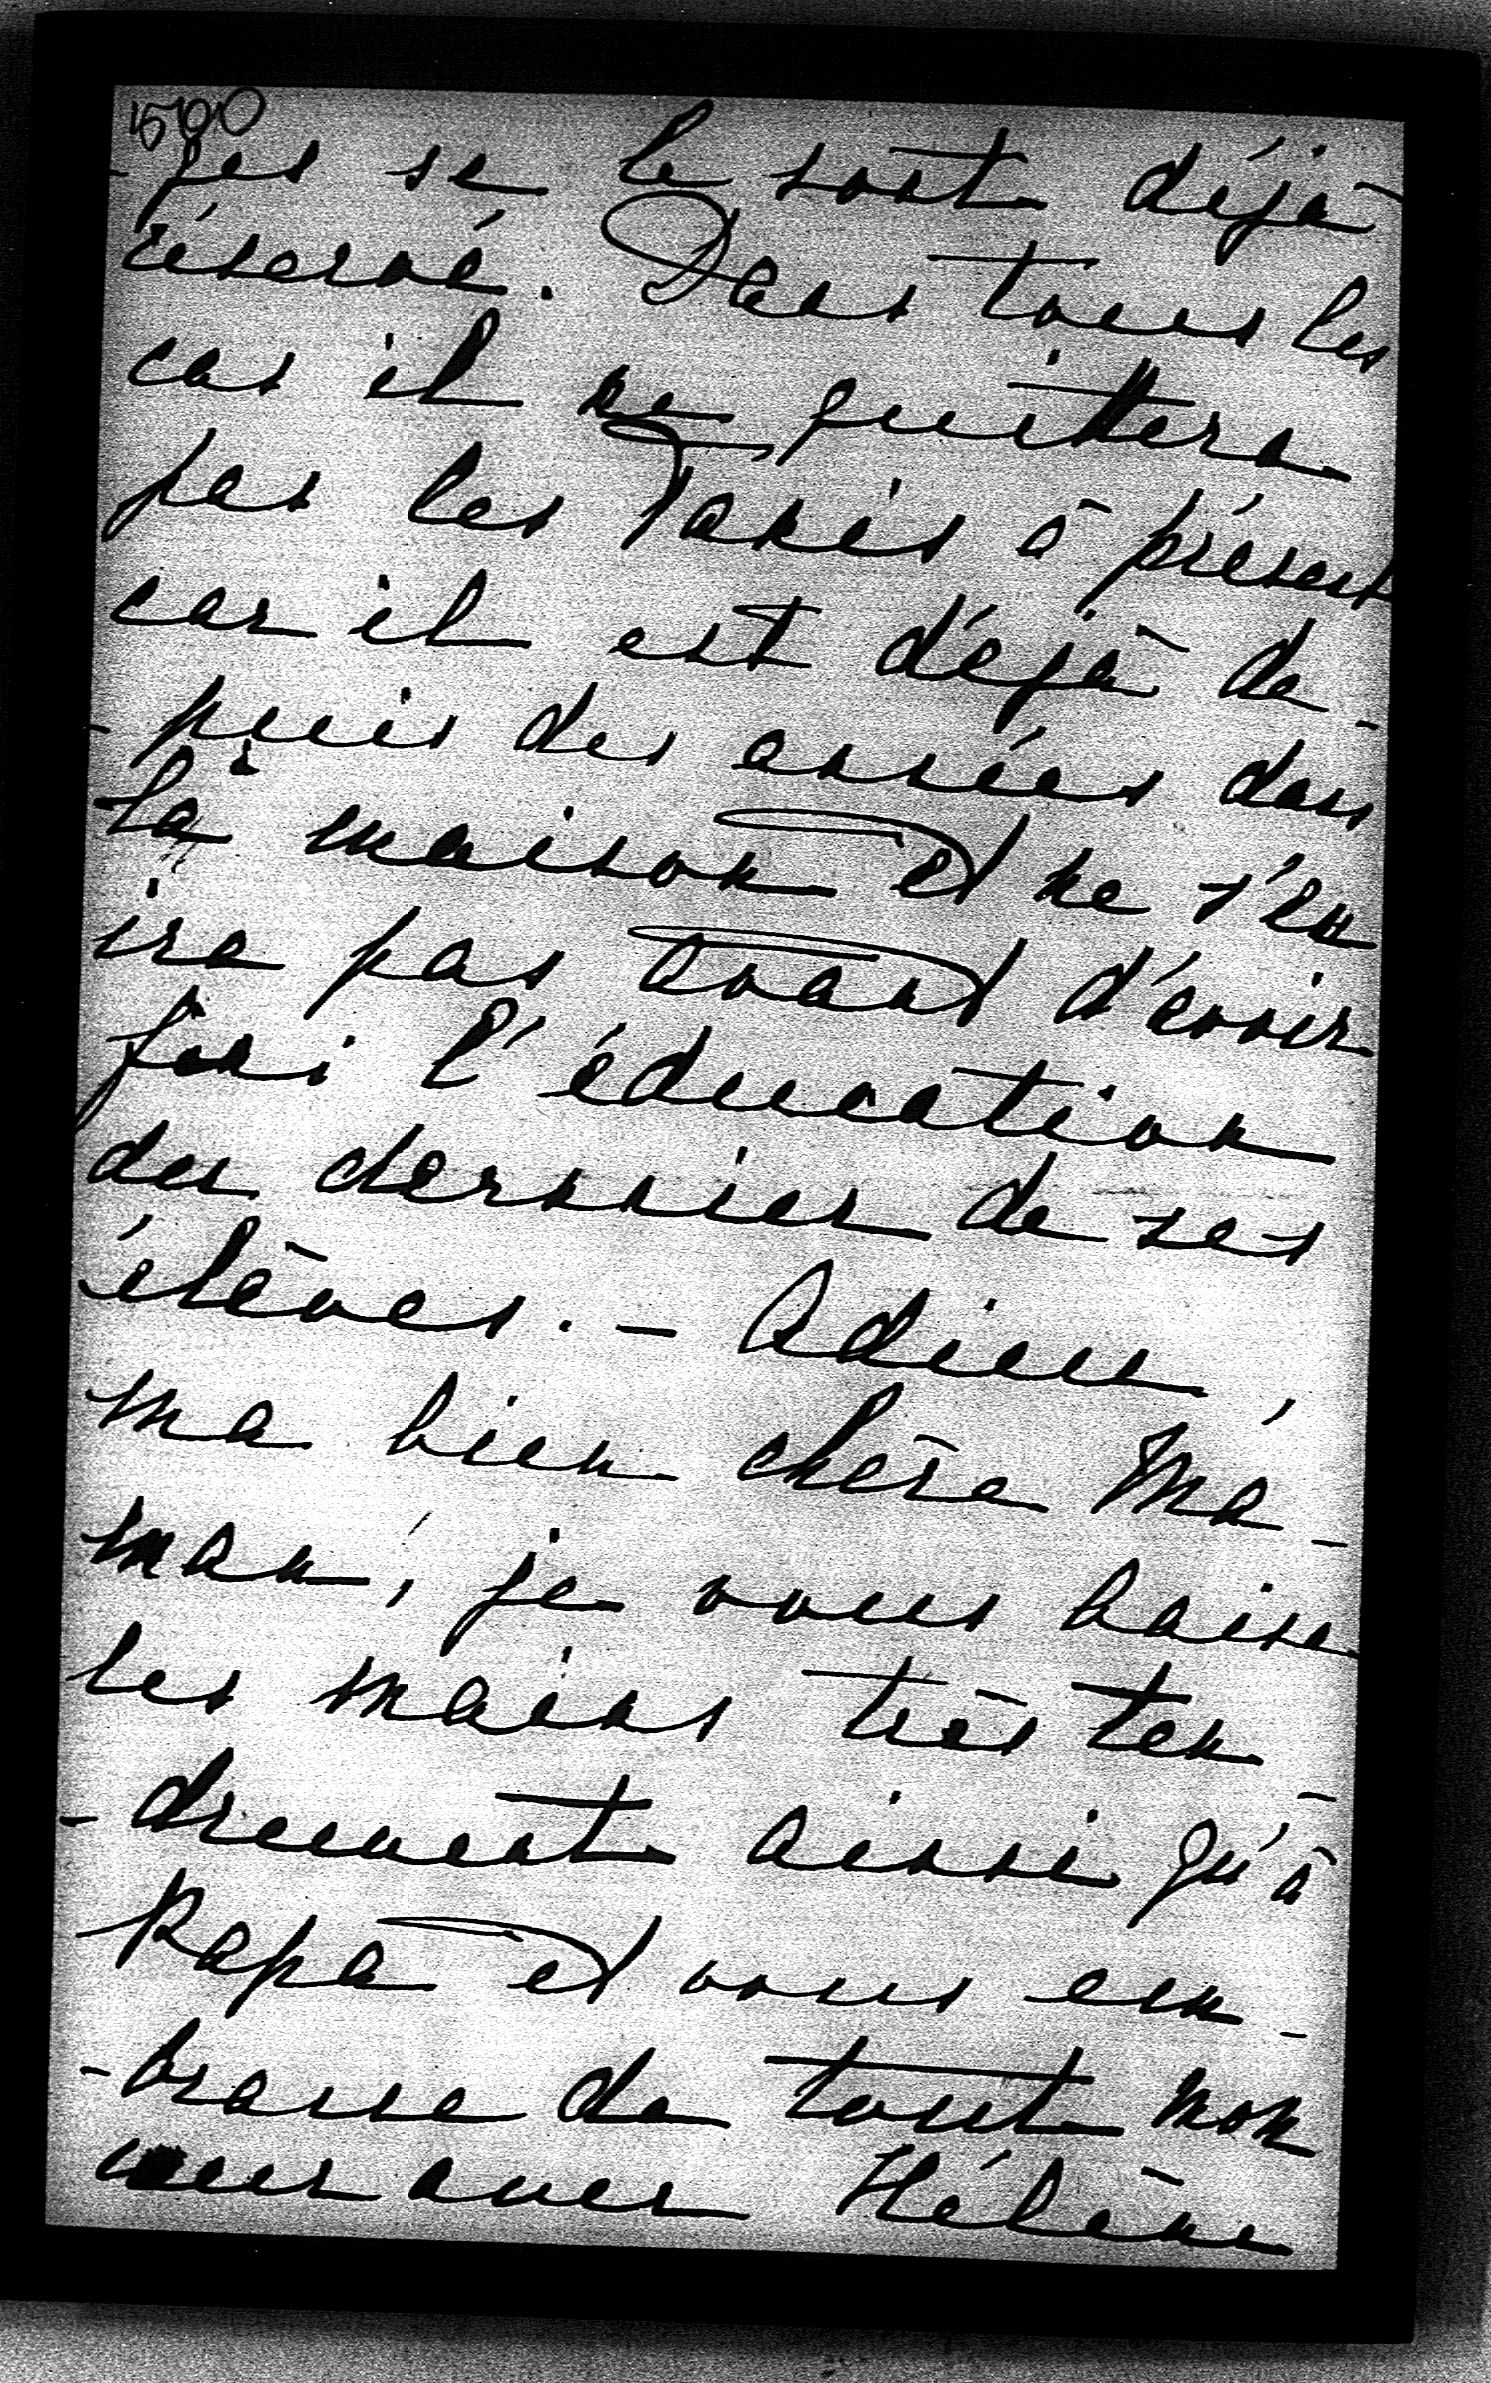 1500
-ges se le sont déjà
réservé. Dans tous les
cas il ne quittera
pas les à présent
car il est déjà de-
-puis des années dans
la maison et ne s'en
ira pas avant d'avoir
fini l'éducation
du dernier de ses
élèves. — Adieu,
ma bien chère Ma-
man, je vous baise
les mains très ten-
-drement ainsi qu'à
Papa et vous em-
-brasse de tout mon
coeur avec Hélène